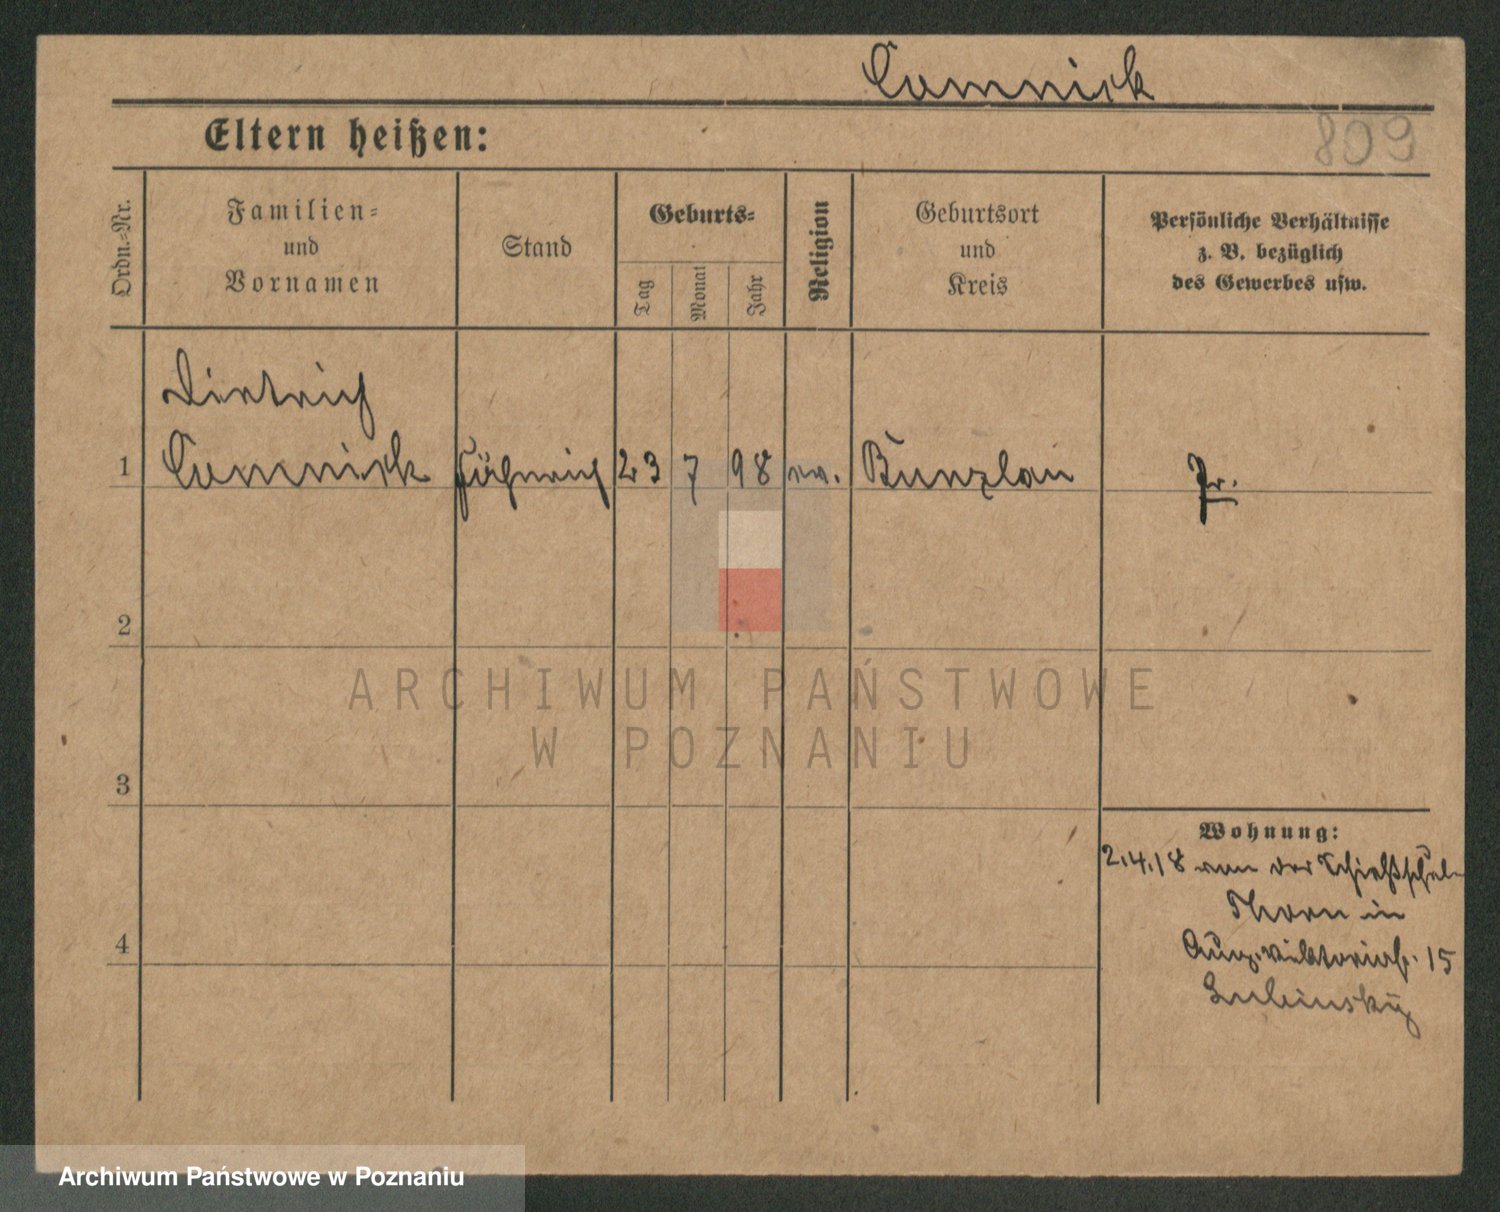 Comnick
809
Eltern heißen:
Ordn.-Nr.
Familien-
und
Vornamen
Stand
Geburts-
Tag
Monat
Jahr
Religion
Geburtsort
und
Kreis
Persönliche Verhältnisse
z. B. bezüglich
des Gewerbes usw.
Dietrich
1 Comnick Fähnrich 23 7 98 ev. Bunzlau Pr.
2
ARCHIWUM PAŃSTWOWE
W POZNANIU
3
Wohnung:
2.4.18 von der Schießschule
Thorn in
Aug. Viktoriastr. 15
4
Archiwum Państwowe w Poznaniu